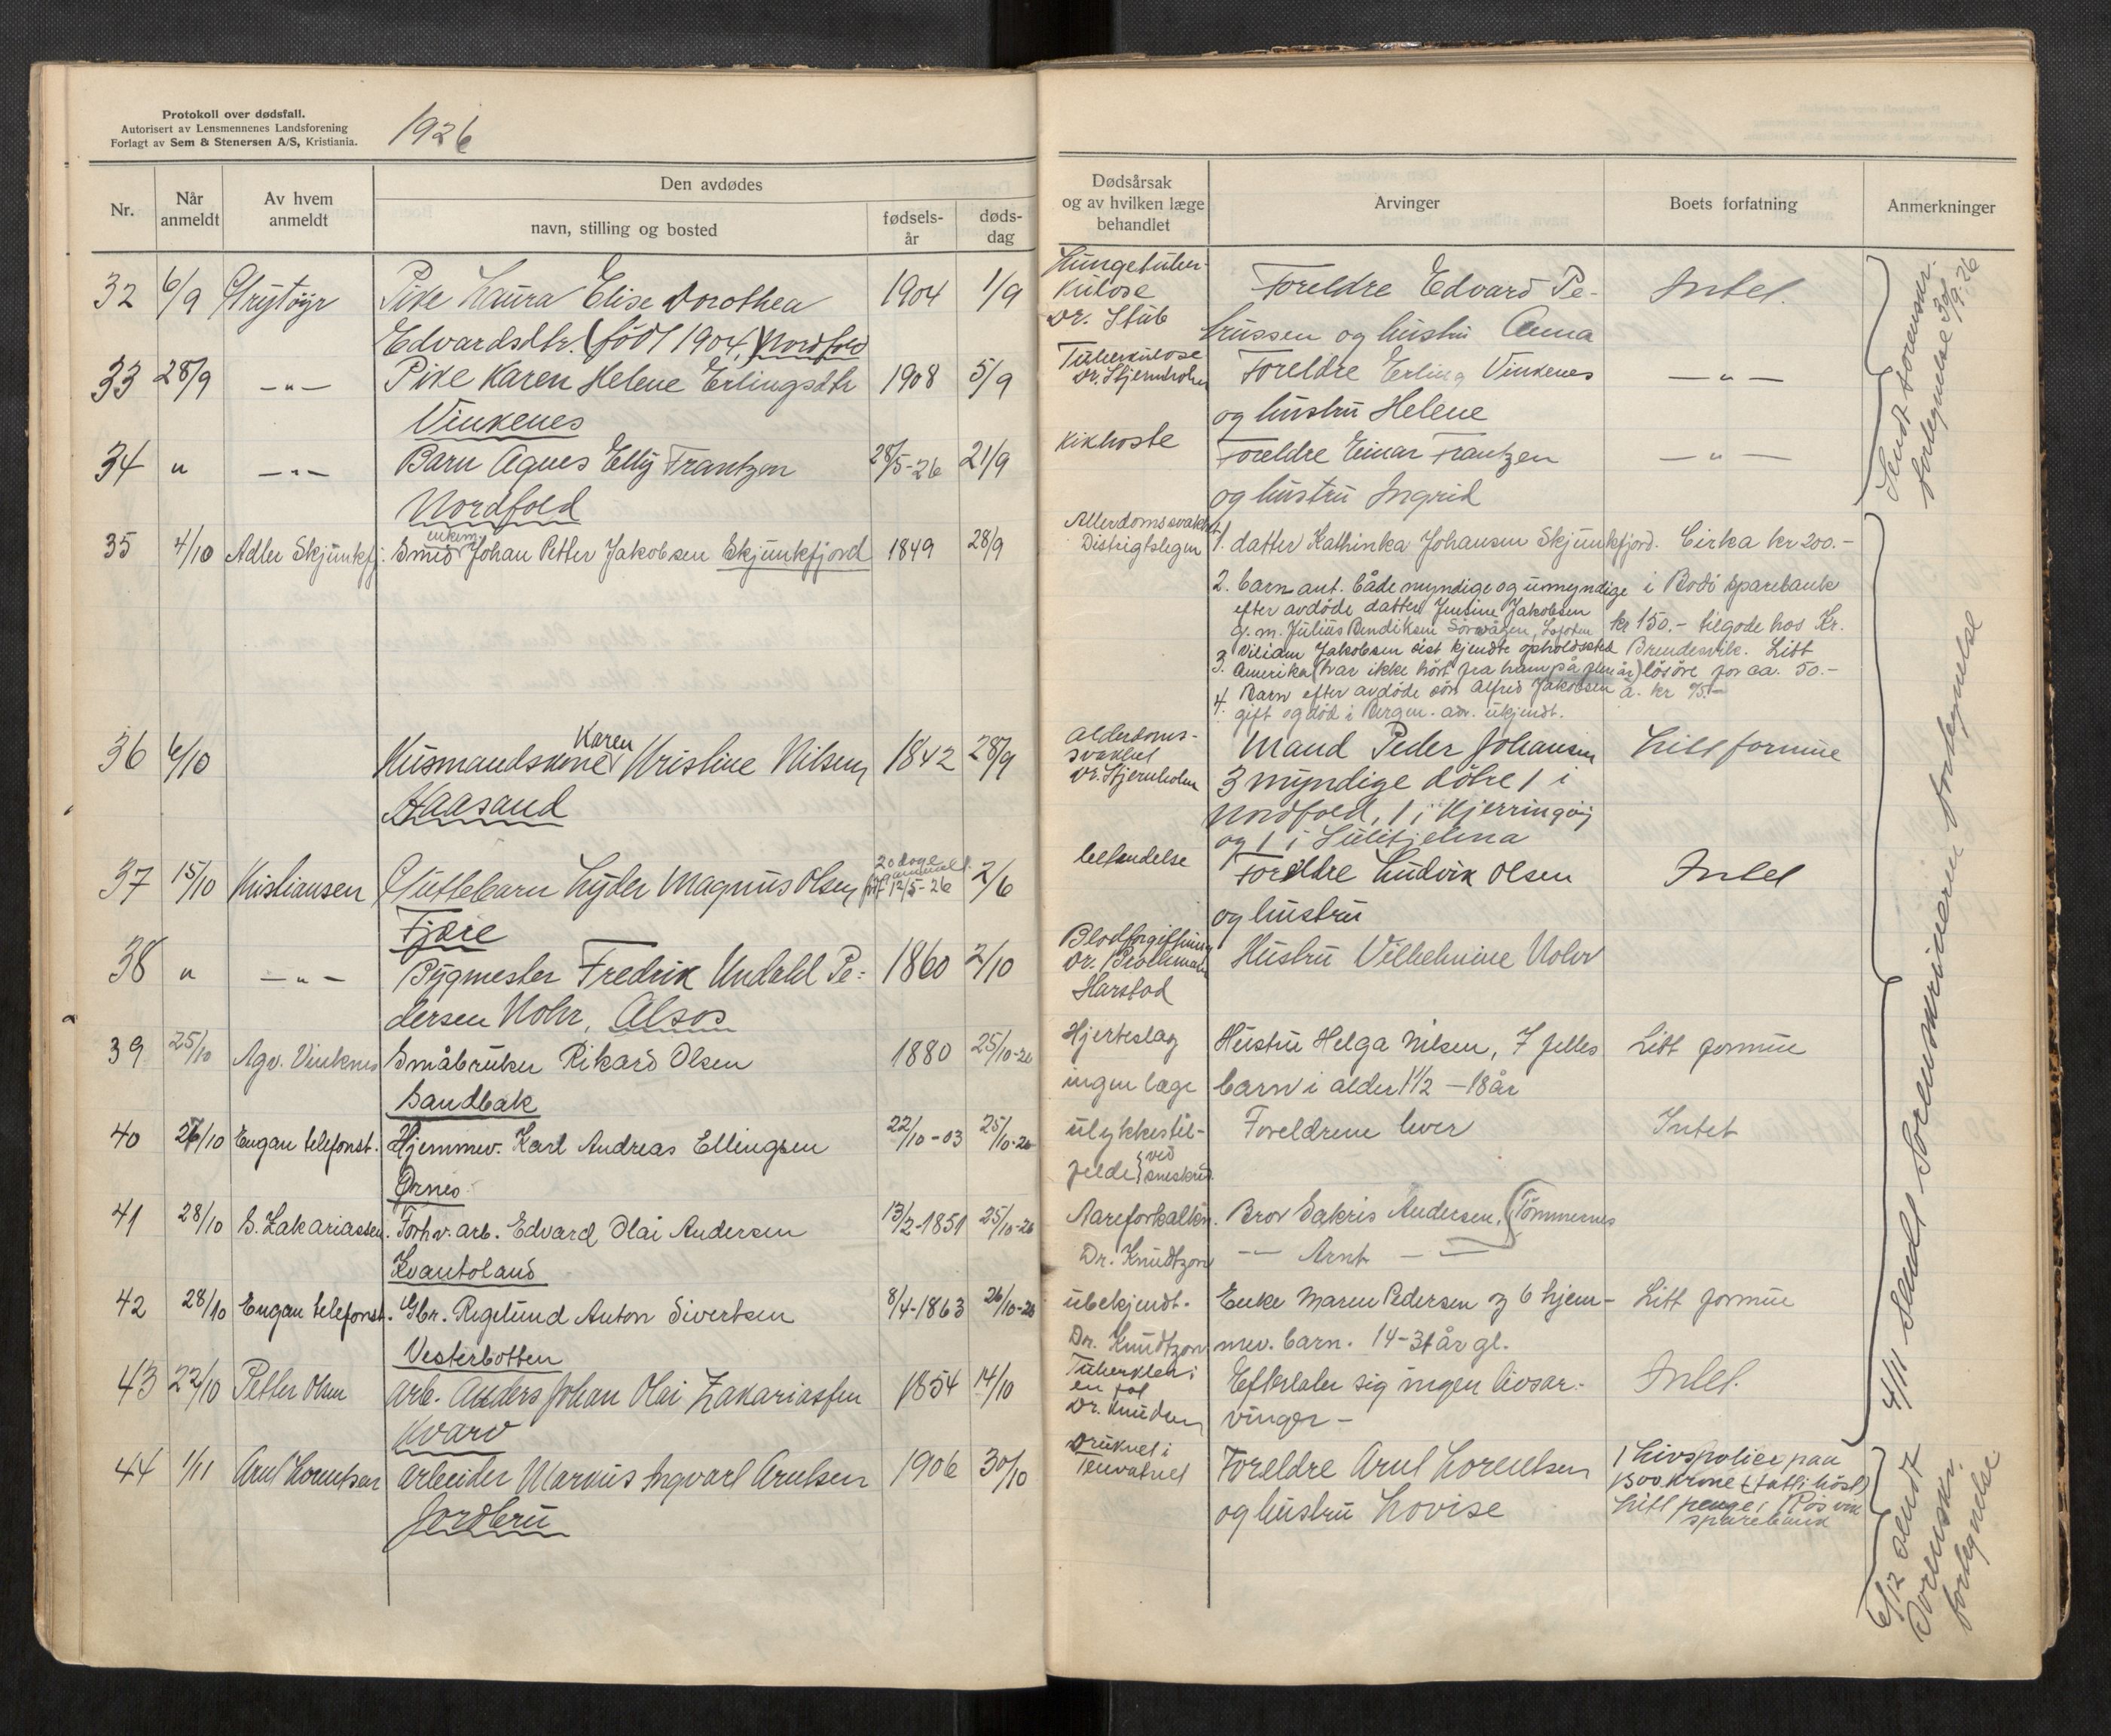 Protokoll over dødsfall.
Autorisert av Lensmennenes Landsforening
Forlagt av Sem & Stenersen A/S, Kristiania.
1926
Nr.
Når anmeldt
Av hvem anmeldt
Den avdødes
navn, stilling og bosted
fødsels-år
døds-dag
Dødsårsak og av hvilken læge behandlet
Arvinger
Boets forfatning
Anmerkninger
32 6/9 Strytöyr Pike Laura Elise Dorothea 1904 1/9
Edvardsdtr. (född 1904,) Nordfold
Lungetuber-
kulose
Dr. Stub
Foreldre Edvard Pe-
trussen og hustru Anna
Intet.
33 28/9 —"— Pike Karen Helene Erlingsdtr 1908 5/9
Vinkenes
Tuberkulose
Dr. Stjernholm
Foreldre Erling Vinkenes
og hustru Helene
—"—
34 " —"— Barn Agnes Elly Frantzen 28/5-26 21/9
Nordfold
Kikhoste
Foreldre Einar Frantzen
og hustru Ingrid
—"—
Sendt sorenskr. fortegnelse 30/9.26
35 4/10 Adler Skjunkfj. Smed enkem. Johan Petter Jakobsen Skjunkfjord 1849 28/9
Allerdomssvakhet
Distrigtslegen
1. datter Kathinka Johansen Skjunkfjord.
2. barn ant. både myndige og umyndige
efter avdöde datter Jensine Jakobsen
g. m. Julius Bendiksen Sörvågen, Lofoten
3. Viliam Jakobsen sist kjendte opholdssted
Amerika (har ikke hört fra ham på flere år)
4. Barn efter avdöde sön Alfred Jakobsen
gift og död i Bergen. adr. ukjendt.
Cirka kr 200.-
i Bodö sparebank
kr 150.- tilgode hos Kr.
Brendesvik. Litt
lösöre for ca. 50.-
à. kr 75.-
36 6/10 Husmandskone Karen Kristine Nilsen 1842 28/9
Aasand
Alderdoms-
svakhet
Dr. Stjernholm
Mand Peder Johansen
3 myndige dötre 1 i
Nordfold, 1 i Kjerringöy
og 1 i Sulitjelma
Litt formue
37 15/10 Kristiansen Guttebarn Lyder Magnus Olsen 20 dage gammel f. 12/5-26 2/6
Fjære
betendelse
Foreldre Ludvik Olsen
og hustru
Intet
38 " —"— Bygmester Fredrik Undahl Pe-
dersen Nohr, Alsos 1860 2/10
Blodforgiftning
Dr.
Harstad
Hustru Vilhelmine Nohr
39 25/10 Agv. Vinknes Småbruker Rikard Olsen 1880 25/10-26
Sandbak
Hjerteslag
ingen læge
Hustru Helga Nilsen, 7 felles
barn i alder 1½ — 18 år
Litt formue
40 26/10 Engan telefonst. Hjemmev. Karl Andreas Ellingsen 22/10-03 25/10-26
Ørnes
ulykkestil-
felde ved sneskred
Foreldrene lever
Intet
41 28/10 S. Zakariassen. Forhv. arb. Edvard Olai Andersen 13/2-1851 25/10-26
Kvantoland
Aareforkalkn.
Dr. Knudtzon
Bror Sakris Andersen, Tömmernes
—"— Arnt —"—
42 28/10 Engan telefonst. Gbr. Regelund Anton Sivertsen 8/4-1863 26/10-26
Vesterbotten
ubekjendt.
Dr. Knudtzon
Enke Maren Pedersen og 6 hjem-
mev. barn. 14-31 år gl.
Litt formue
43 22/10 Petter Olsen Arb. Anders Johan Olai Zakariassen 1854 14/10
Kvarv
Tuberkler i
en fot
Dr. Knudsen
Efterlater sig ingen livsar-
vinger —
Intet.
4/11 Sendt Sorenskriveren fortegnelse
44 1/11 Arnt Lorentsen Arbeider Markus Ingvart Arntsen 1906 30/10
Jordbru
Druknet i
Tenvatnet
Foreldre Arnt Lorentsen
og hustru Lovise
1 Livspolice paa
1500 krone (tatt i höst)
Litt penge i Rösvik
sparebank
6/12 sendt
Sorenskr.
fortegnelse